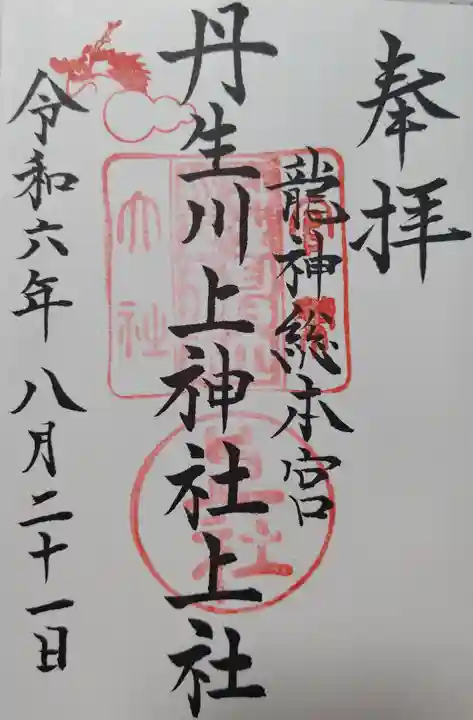 奉拝
龍神総本宮
丹生川上神社上社
令和六年八月二十一日
上社